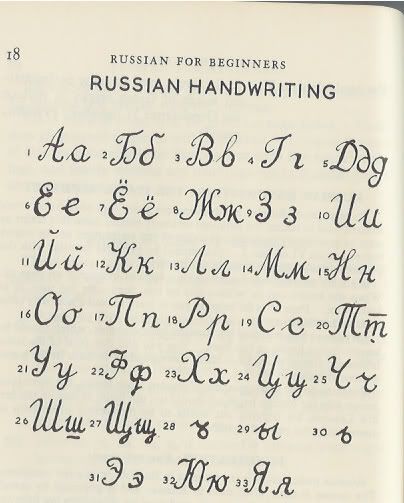 18
RUSSIAN FOR BEGINNERS
RUSSIAN HANDWRITING
1 Аа 2 Бб 3 Вв 4 Гг 5 Ддд
6 Ее 7 Ёё 8 Жж 9 Зз 10 Ии
11 Йй 12 Кк 13 Лл 14 Мм 15 Нн
16 Оо 17 Пп 18 Рр 19 Сс 20 Тт
21 Уу 22 Фф 23 Хх 24 Цц 25 Чч
26 Шш 27 Щщ 28 ъ 29 ы 30 ь
31 Ээ 32 Юю 33 Яя